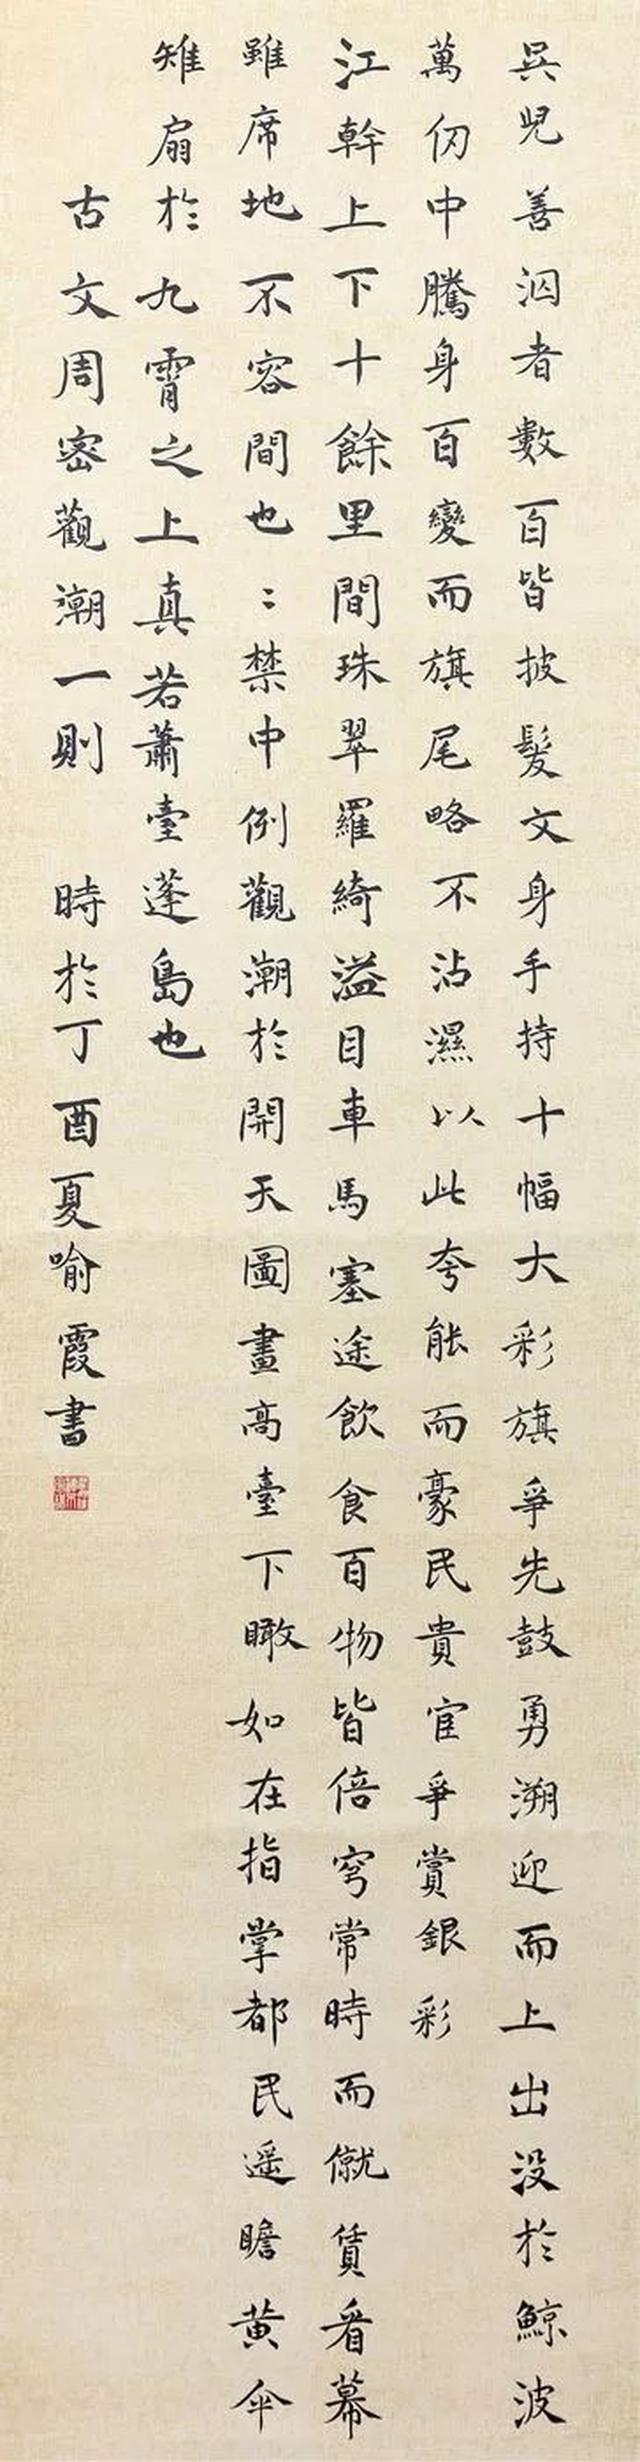 吳兒善泅者數百皆披髮文身手持十幅大彩旗爭先鼓勇溯迎而上出没於鯨波
萬仞中騰身百變而旗尾略不沾濕以此夸能而豪民貴宦爭賞銀彩
江幹上下十餘里間珠翠羅綺溢目車馬塞途飲食百物皆倍穹常時而僦賃看幕
雖席地不容間也：禁中例觀潮於開天圖畫高臺下瞰如在指掌都民遥瞻黄伞
雉扇於九霄之上真若蕭臺蓬島也
古文周密觀潮一則 時於丁酉夏喻霞書